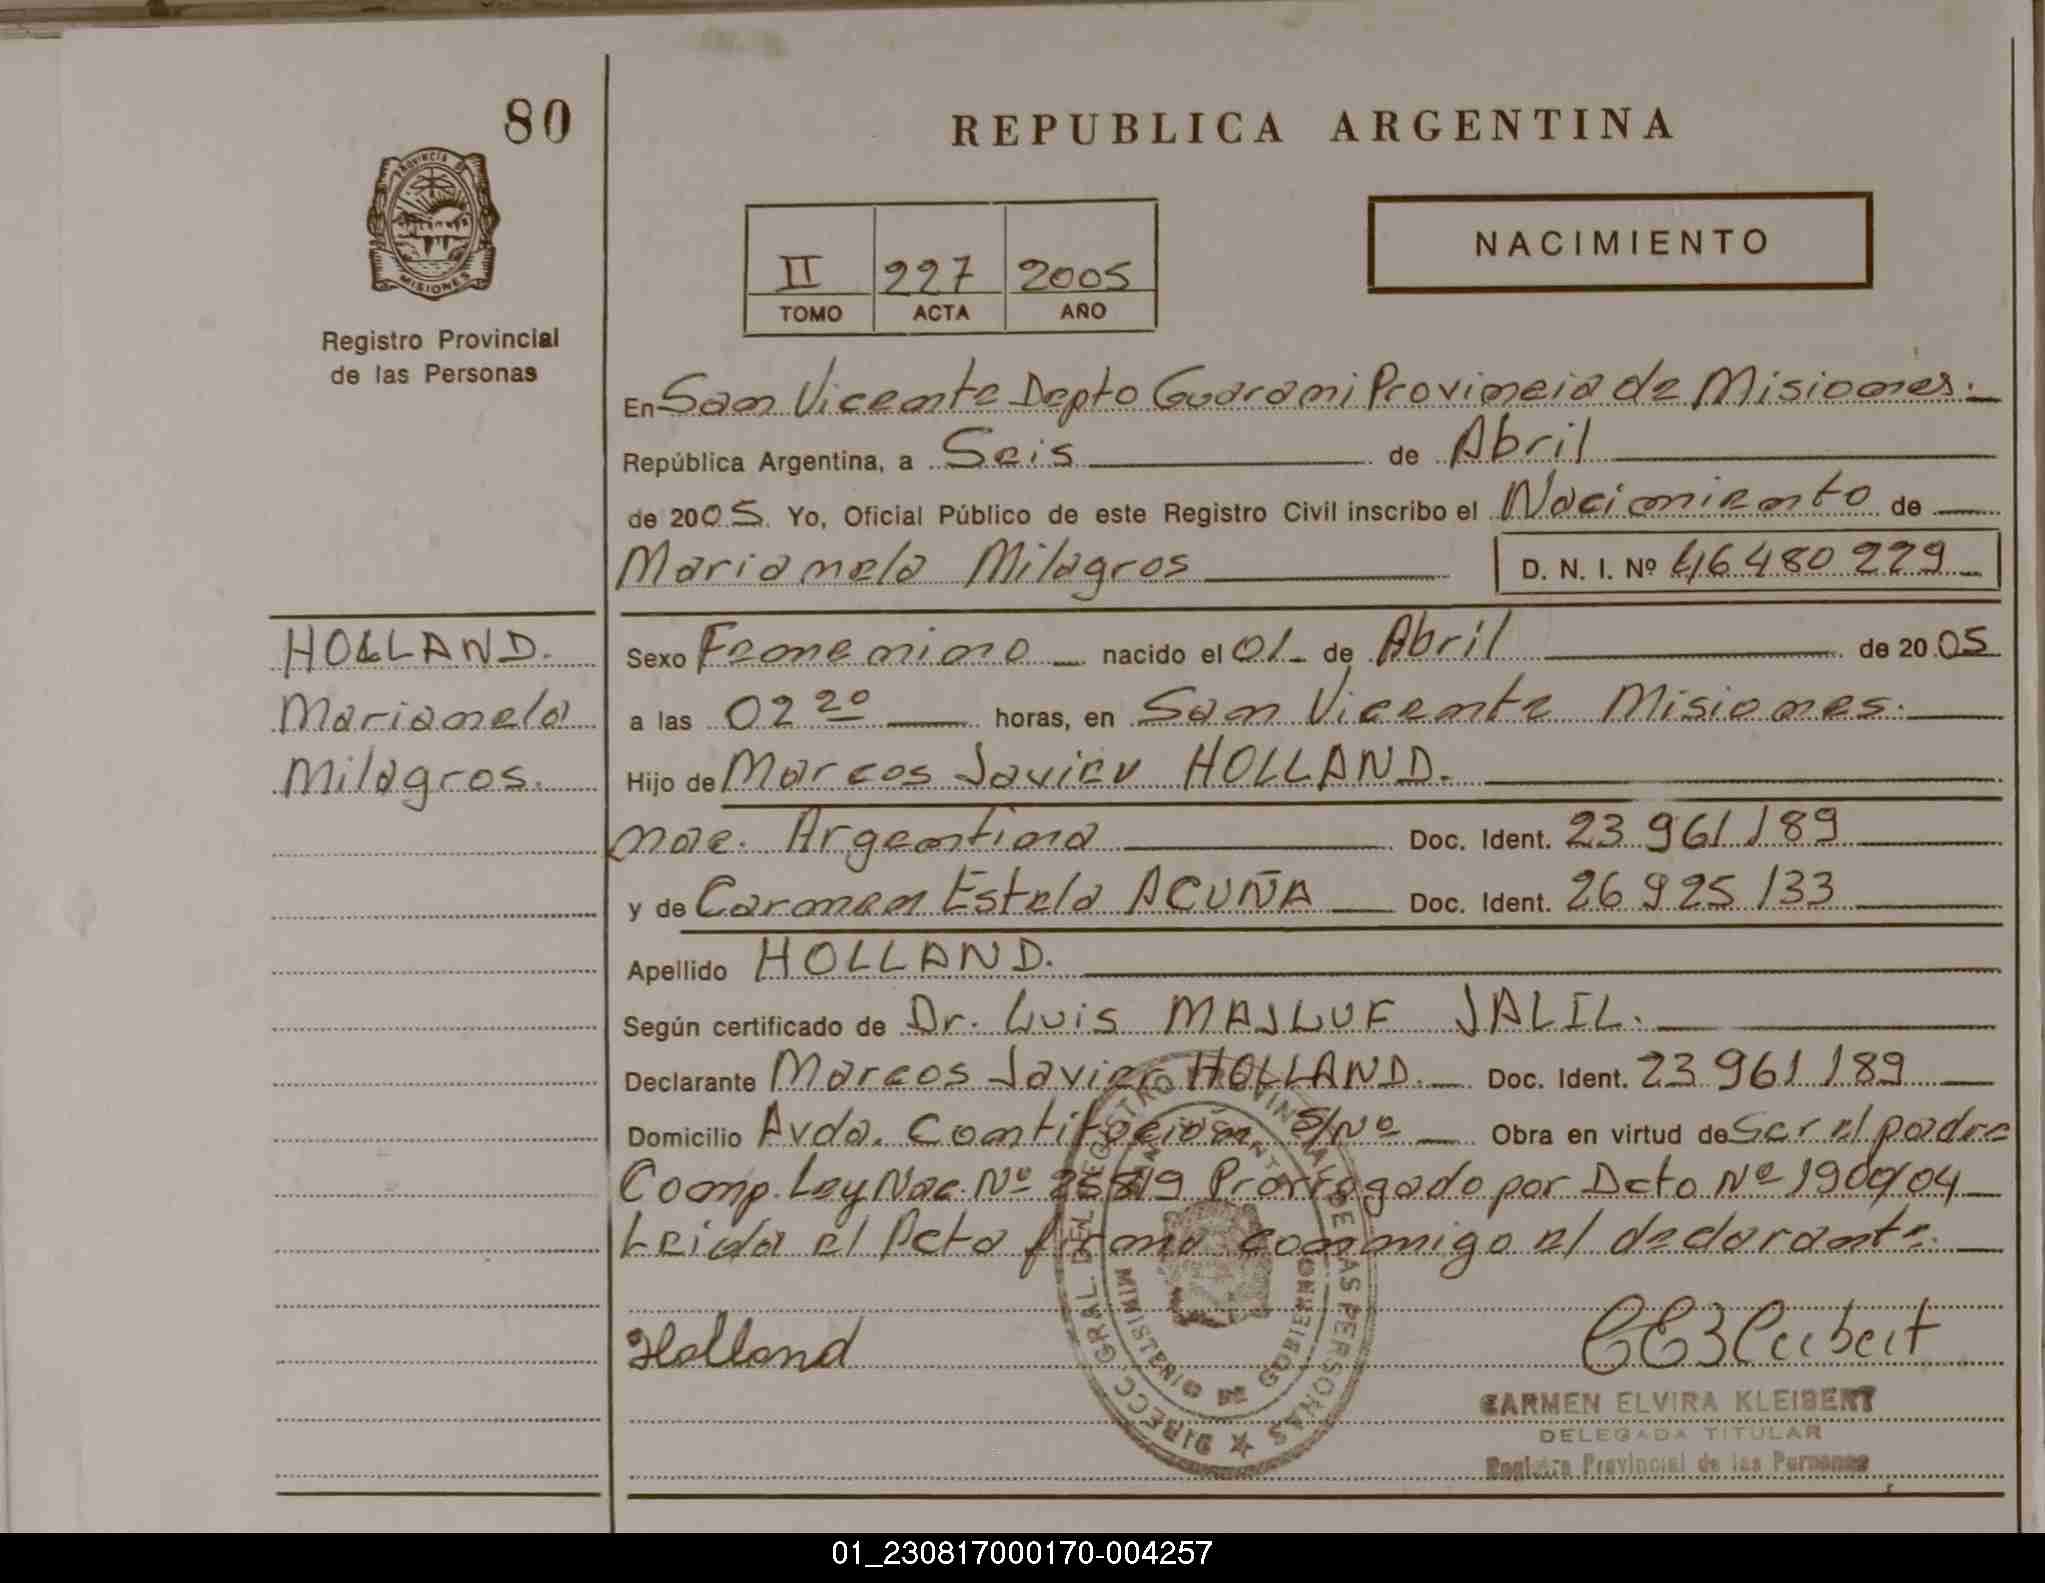 80
REPUBLICA ARGENTINA
PROVINCIA DE
MISIONES
Registro Provincial
de las Personas
NACIMIENTO
II 227 2005
TOMO ACTA AÑO
En San Vicente Depto Guarani Provincia de Misiones.
República Argentina, a Seis de Abril
de 2005. Yo, Oficial Público de este Registro Civil inscribo el Nacimiento de
Marianela Milagros D. N. I. Nº 46480229
HOLLAND.
Marianela
Milagros.
Sexo Femenino nacido el 01 de Abril de 2005
a las 02 20 horas, en San Vicente Misiones.
Hijo de Marcos Javier HOLLAND.
nac. Argentina Doc. Ident. 23 961 189
y de Carmen Estela ACUÑA Doc. Ident. 26 925 133
Apellido HOLLAND.
Según certificado de Dr. Luis MAJLUF JALIL.
Declarante Marcos Javier HOLLAND. Doc. Ident. 23 961 189
Domicilio Avda. Contitución S/Nº Obra en virtud de Ser el padre
Comp. Ley Nac. Nº 25819 Prorrogado por Dcto Nº 1900/04
Leida el Acta firma conmigo el declarante.
DIRECC. GRAL. DEL REGISTRO PROVINCIAL DE LAS PERSONAS
MINISTERIO DE GOBIERNO
Holland
CEKleibert
CARMEN ELVIRA KLEIBERT
DELEGADA TITULAR
Registro Provincial de las Personas
01_230817000170-004257